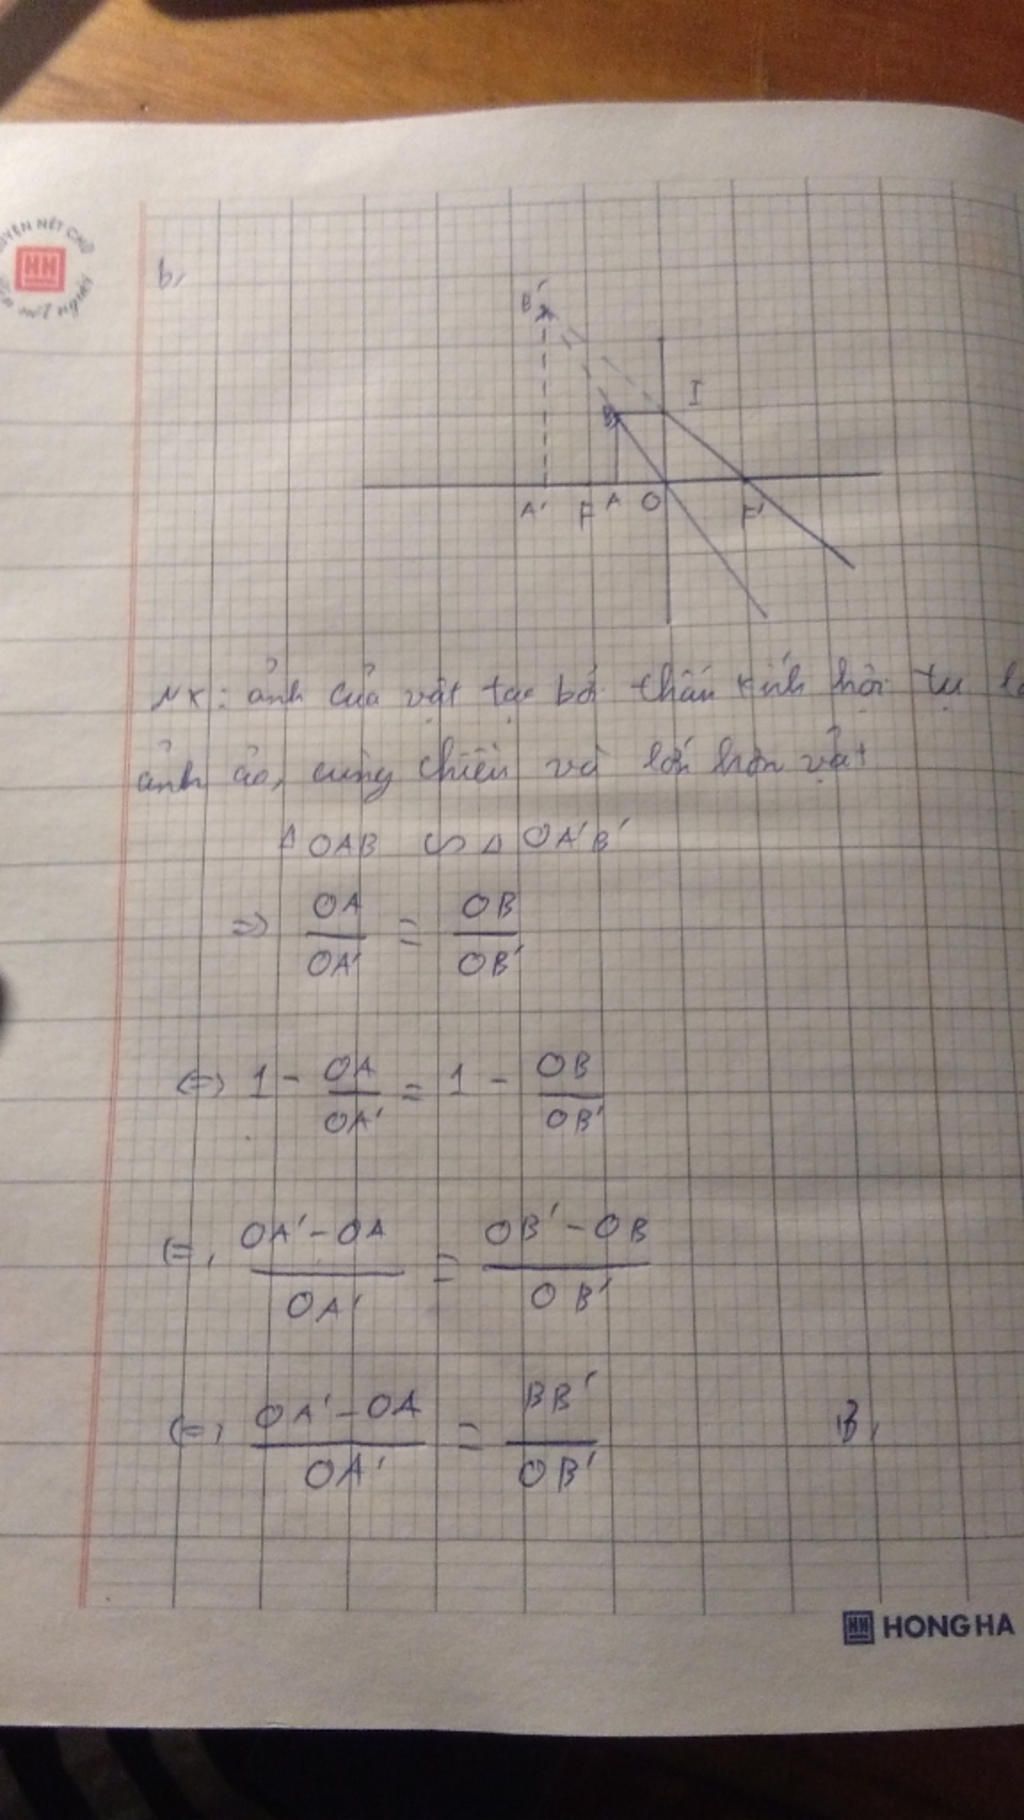 HH
b,
B'
B
I
A' F A O F'
NX: ảnh của vật tạo bởi thấu kính hội tụ là
ảnh ảo, cùng chiều và lớn hơn vật
Δ OAB ∽ Δ OA'B'
=> OA/OA' = OB/OB'
(=) 1 - OA/OA' = 1 - OB/OB'
(=, (OA' - OA)/OA' = (OB' - OB)/OB'
(=, (OA' - OA)/OA' = BB'/OB' B,
HONG HA